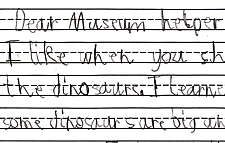 Dear Museum helper
I like when you sh
the dinosaurs. I learne
some dinosaurs are big wh